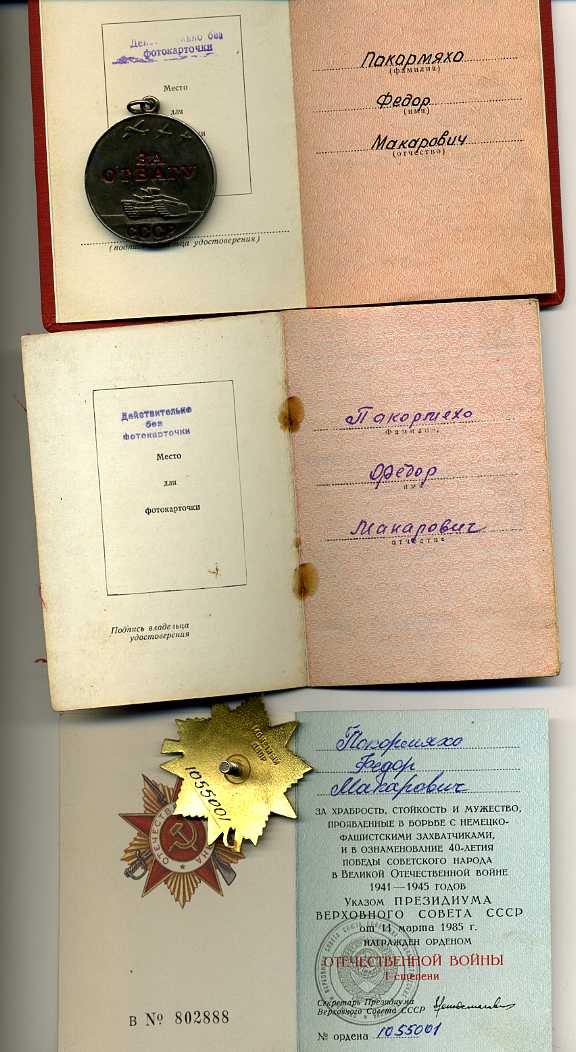 Действительно без
фотокарточки
Место
для
ЗА
ОТВАГУ
СССР
удостоверения)
Пакормяхо
(фамилия)
Федор
(имя)
Макарович
(отчество)
Действительно
без
фотокарточки
Место
для
фотокарточки
Подпись владельца
удостоверения
Пакормехо
фамилия
Фёдор
имя
Макарович
отчество
МОНЕТНЫЙ
ДВОР
1055001
ОТЕЧЕСТВЕННАЯ
В № 802888
Покормяхо
Федор
Макарович
ЗА ХРАБРОСТЬ, СТОЙКОСТЬ И МУЖЕСТВО,
ПРОЯВЛЕННЫЕ В БОРЬБЕ С НЕМЕЦКО-
ФАШИСТСКИМИ ЗАХВАТЧИКАМИ,
И В ОЗНАМЕНОВАНИЕ 40-ЛЕТИЯ
ПОБЕДЫ СОВЕТСКОГО НАРОДА
В ВЕЛИКОЙ ОТЕЧЕСТВЕННОЙ ВОЙНЕ
1941—1945 ГОДОВ
УКАЗОМ ПРЕЗИДИУМА
ВЕРХОВНОГО СОВЕТА СССР
от 11 марта 1985 г.
НАГРАЖДЕН ОРДЕНОМ
ОТЕЧЕСТВЕННОЙ ВОЙНЫ
I степени
Секретарь Президиума
Верховного Совета СССР
№ ордена 1055001